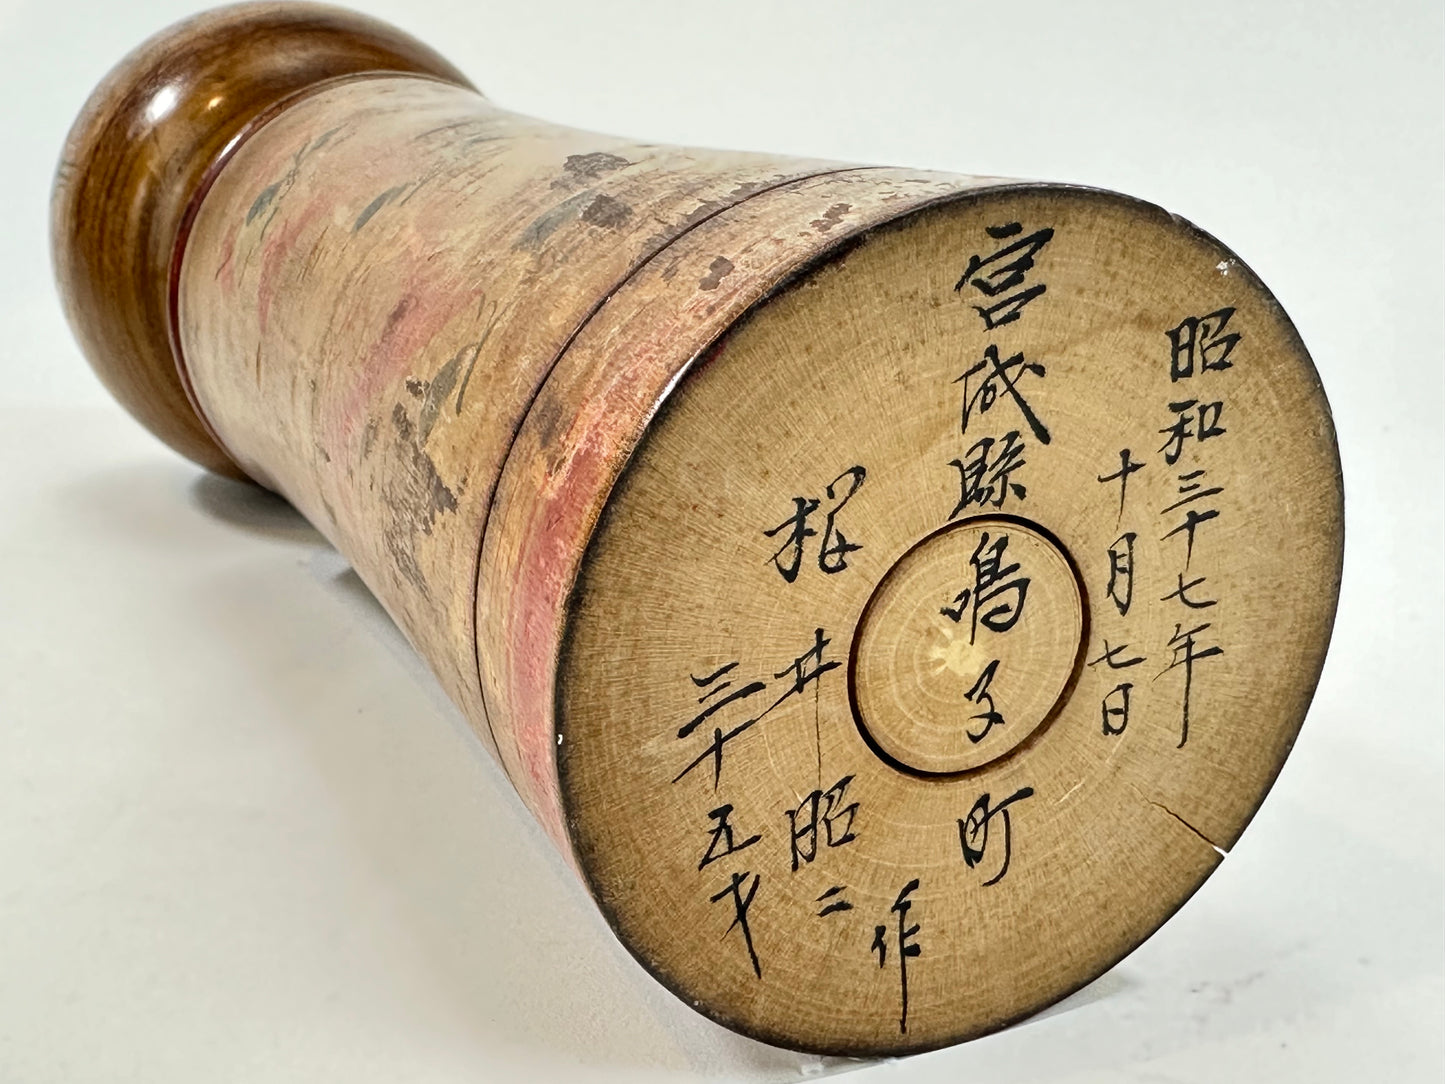 昭和三十七年
十月七日
宮城縣鳴子町
桜井昭二
作
三十五才